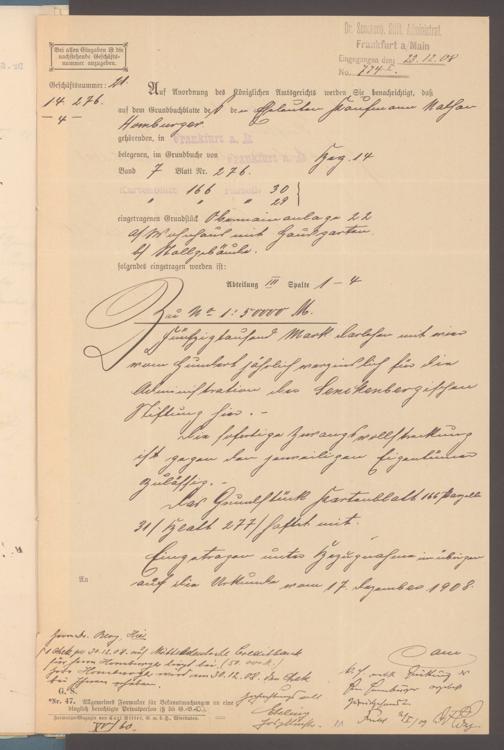 Bei allen Eingaben ist die
nachstehende Geschäfts-
nummer anzugeben.
Dr. Senckenb. Stift. Administrat.
Frankfurt a/Main
Eingegangen den 23.12.08
No. 774
Geschäftsnummer:
14. 276.
— 4 —
Auf Anordnung des Königlichen Amtsgerichts werden Sie benachrichtigt, daß
auf dem Grundbuchblatte der Eheleuten Kaufmann Nathan
Homburger
gehörenden, in Frankfurt a. M
belegenen, im Grundbuche von Frankfurt a. M Bez. 14
Band 7 Blatt Nr. 276.
Kartenblatt 166 Parzelle 30
" " " 29
eingetragenen Grundstück Obermainanlage 22
a) Wohnhaus mit Hausgarten
b) Stallgebäude.
folgendes eingetragen worden ist:
Abteilung III Spalte 1-4
Zu No 1: 50000 M.
Fünfzigtausend Mark Darlehen mit vier
vom Hundert jährlich verzinslich für die
Administration der Senckenbergischen
Stiftung hier. -
Die sofortige Zwangsvollstreckung
ist gegen den jeweiligen Eigentümer
zulässig. -
Das Grundstück Kartenblatt 166 Parzelle
31 / Blatt 277 / haftet mit.
Eingetragen unter Bezugnahme im übrigen
auf die Urkunde vom 17. Dezember 1908.
An
Herrn Dr. Berg, Hier
30.12.08 auf Mitteldeutsche Creditbank
für Herrn Homburger liegt bei. (50.000 M.)
Herr Homburger wird am 30.12.08. den Check
bei Ihnen erheben.
G. B.
*Nr. 47. Allgemeines Formular für Bekanntmachungen an eine
Formular-Magazin von Carl Ritter, G. m. b. H., Wiesbaden.